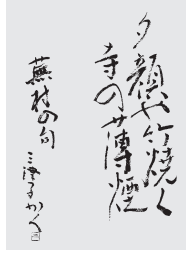 夕顔や竹焼く
寺の薄煙
蕪村の句
かく